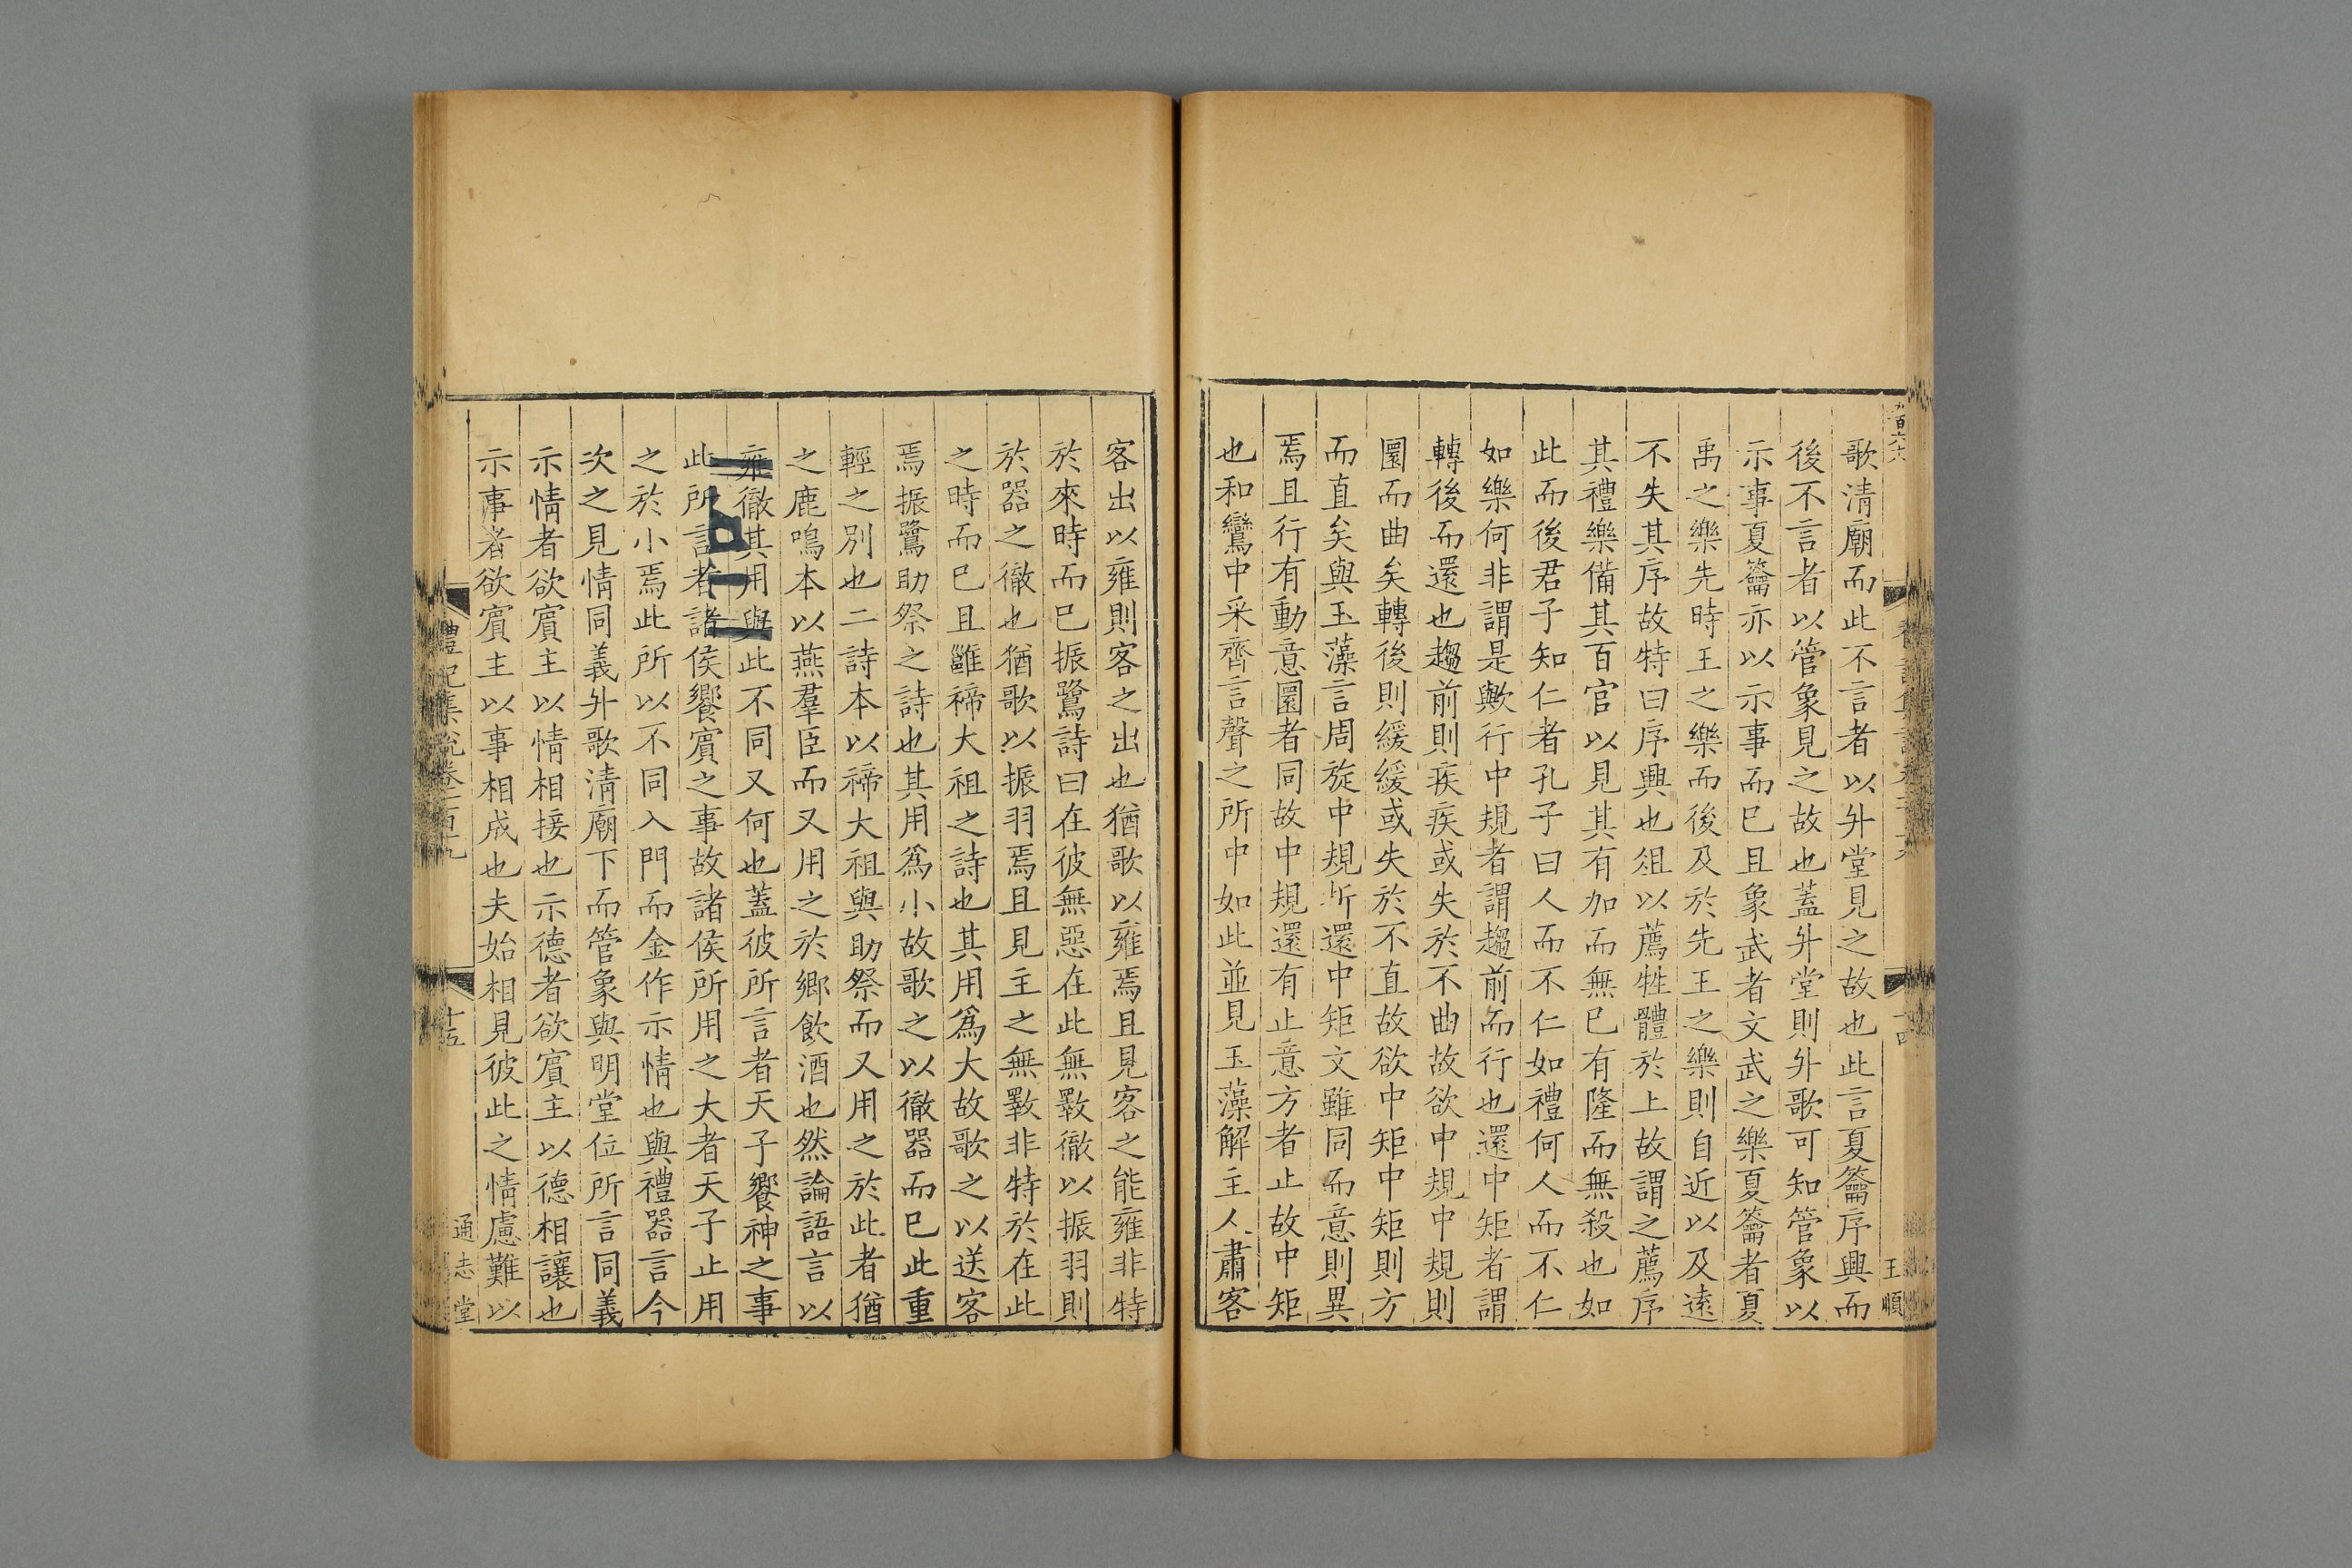 歌清廟而此不言者以升堂見之故也此言夏籥序興而
後不言者以管象見之故也蓋升堂則升歌可知管象以
示事夏籥亦以示事而已且象武者文武之樂夏籥者夏
禹之樂先時王之樂而後及於先王之樂則自近以及遠
不失其序故特曰序興也俎以薦牲體於上故謂之薦序
其禮樂備其百官以見其有加而無已有隆而無殺也如
此而後君子知仁者孔子曰人而不仁如禮何人而不仁
如樂何非謂是歟行中規者謂趨前而行也還中矩者謂
轉後而還也趨前則疾疾或失於不曲故欲中規中規則
圜而曲矣轉後則緩緩或失於不直故欲中矩中矩則方
而直矣與玉藻言周旋中規折還中矩文雖同而意則異
焉且行有動意圜者同故中規還有止意方者止故中矩
也和鸞中采齊言聲之所中如此並見玉藻解主人肅客
王順
客出以雍則客之出也猶歌以雍焉且見客之能雍非特
於來時而已振鷺詩曰在彼無惡在此無斁徹以振羽則
於器之徹也猶歌以振羽焉且見主之無斁非特於在此
之時而已且雝禘大祖之詩也其用為大故歌之以送客
焉振鷺助祭之詩也其用為小故歌之以徹器而已此重
輕之別也二詩本以禘大祖與助祭而又用之於此者猶
之鹿鳴本以燕羣臣而又用之於鄉飲酒也然論語言以
雍徹其用與此不同又何也蓋彼所言者天子饗神之事
此所言者諸侯饗賓之事故諸侯所用之大者天子止用
之於小焉此所以不同入門而金作示情也與禮器言今
次之見情同義升歌清廟下而管象與明堂位所言同義
示情者欲賓主以情相接也示德者欲賓主以德相讓也
示事者欲賓主以事相成也夫始相見彼此之情慮難以
禮記集說卷一百十九
十五
通志堂